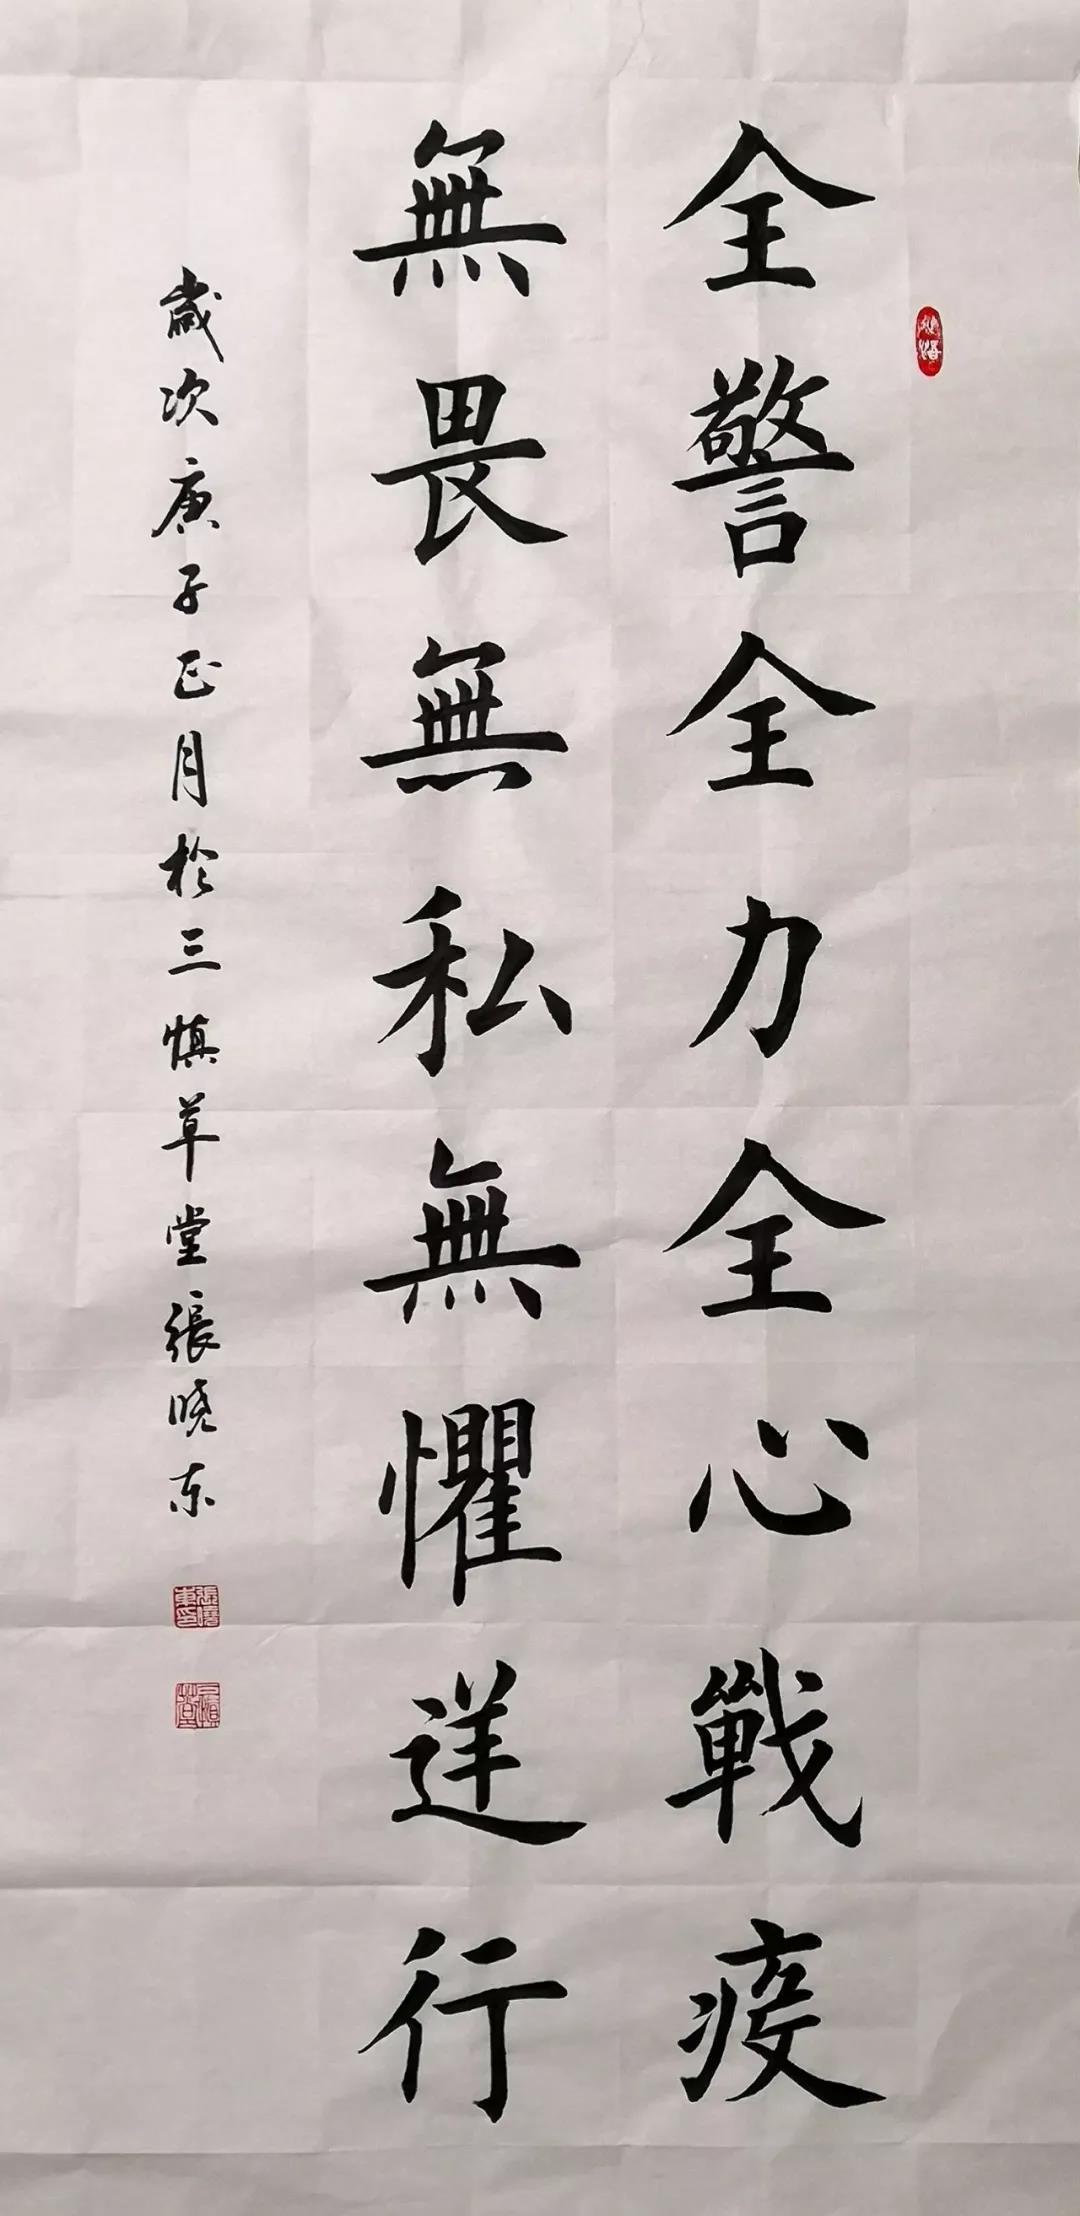 全警全力全心戰疫
無畏無私無懼逆行
歲次庚子正月於三慎草堂張曉东